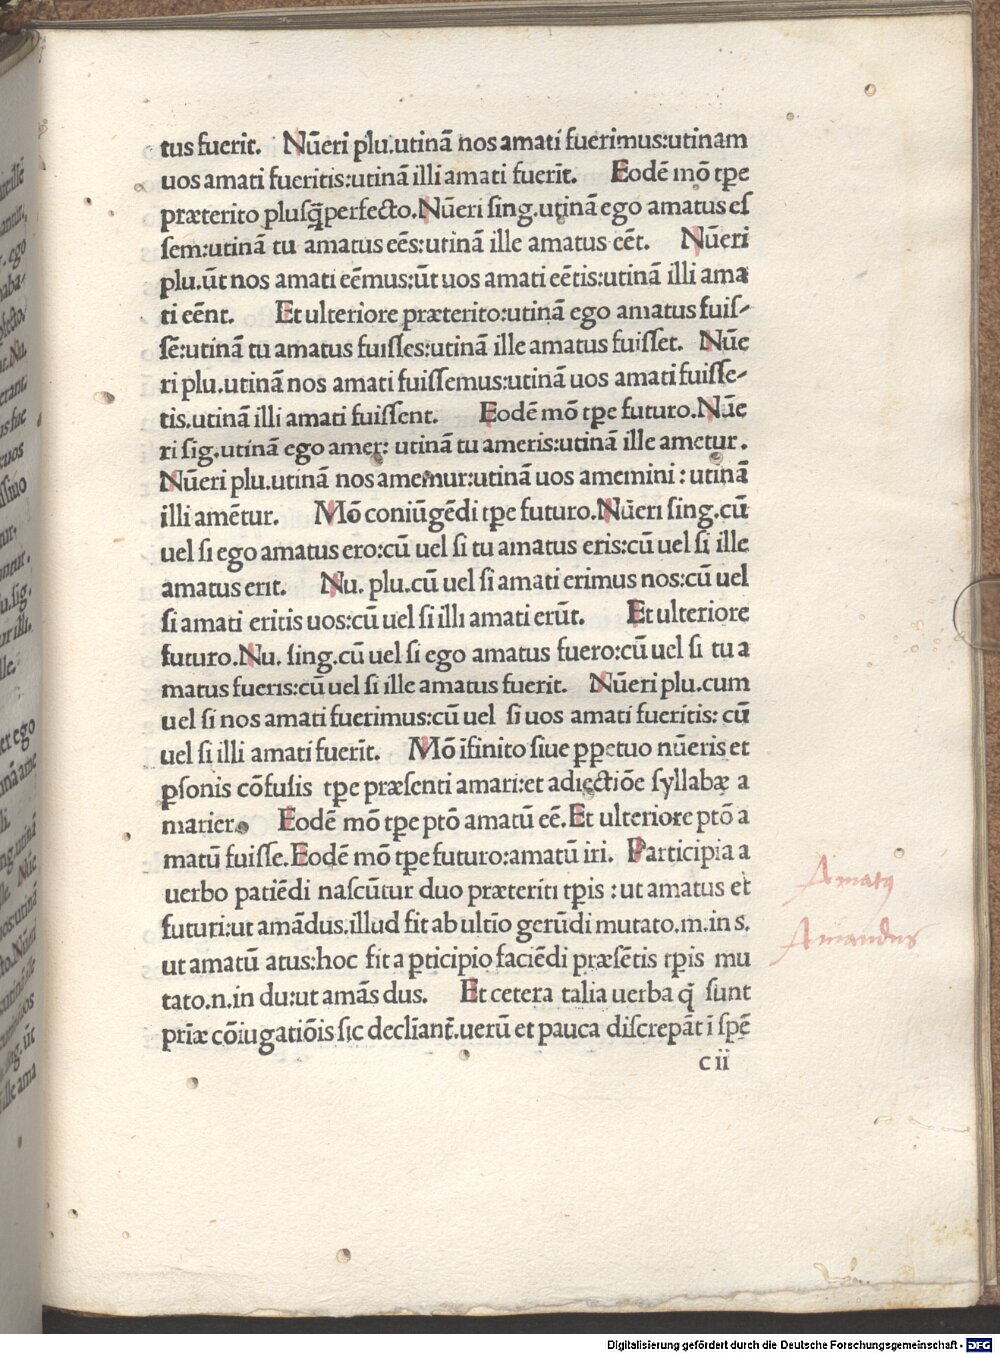 tus fuerit. Nūeri plu.utinā nos amati fuerimus:utinam
uos amati fueritis:utinā illi amati fuerīt. Eodē mō tꝑe
præterito plusq̄ꝑfecto.Nūeri sing.utinā ego amatus es
sem:utinā tu amatus eēs:utinā ille amatus eēt. Nūeri
plu.ūt nos amati eēmus:ūt uos amati eētis:utinā illi ama
ti eēnt. Et ulteriore præterito:utinā ego amatus fuis-
sē:utinā tu amatus fuisses:utinā ille amatus fuisset. Nūe
ri plu.utinā nos amati fuissemus:utinā uos amati fuisse-
tis.utinā illi amati fuissent. Eodē mō tꝑe futuro.Nūe
ri sig.utinā ego amer: utinā tu ameris:utinā ille ametur.
Nūeri plu.utinā nos amemur:utinā uos amemini : utinā
illi amētur. Mō coniūgēdi tꝑe futuro.Nūeri sing.cū
uel si ego amatus ero:cū uel si tu amatus eris:cū uel si ille
amatus erit. Nu. plu.cū uel si amati erimus nos:cū uel
si amati eritis uos:cū uel si illi amati erūt. Et ulteriore
futuro.Nu. sing.cū uel si ego amatus fuero:cū uel si tu a
matus fueris:cū uel si ille amatus fuerit. Nūeri plu.cum
uel si nos amati fuerimus:cū uel si uos amati fueritis: cū
uel si illi amati fuerīt. Mō īfinito siue ꝑpetuo nūeris et
ꝑsonis cōfusis tꝑe præsenti amari:et adiectiōe syllabæ a
marier. Eodē mō tꝑe ptō amatū eē.Et ulteriore ptō a
matū fuisse.Eodē mō tꝑe futuro:amatū iri. Participia a
uerbo patiēdi nascūtur duo præteriti tꝑis : ut amatus et
futuri:ut amādus.illud fit ab ultīo gerūdi mutato.m.in s.
ut amatū atus:hoc fit a ꝑticipio faciēdi præsētis tꝑis mu
tato.n.in du:ut amās dus. Et cetera talia uerba q̄ sunt
prīæ cōiugatiōis sic declīant̄.uerū et pauca discrepāt ī spē
c ii
Amatꝰ
Amandus
Digitalisierung gefördert durch die Deutsche Forschungsgemeinschaft - DFG